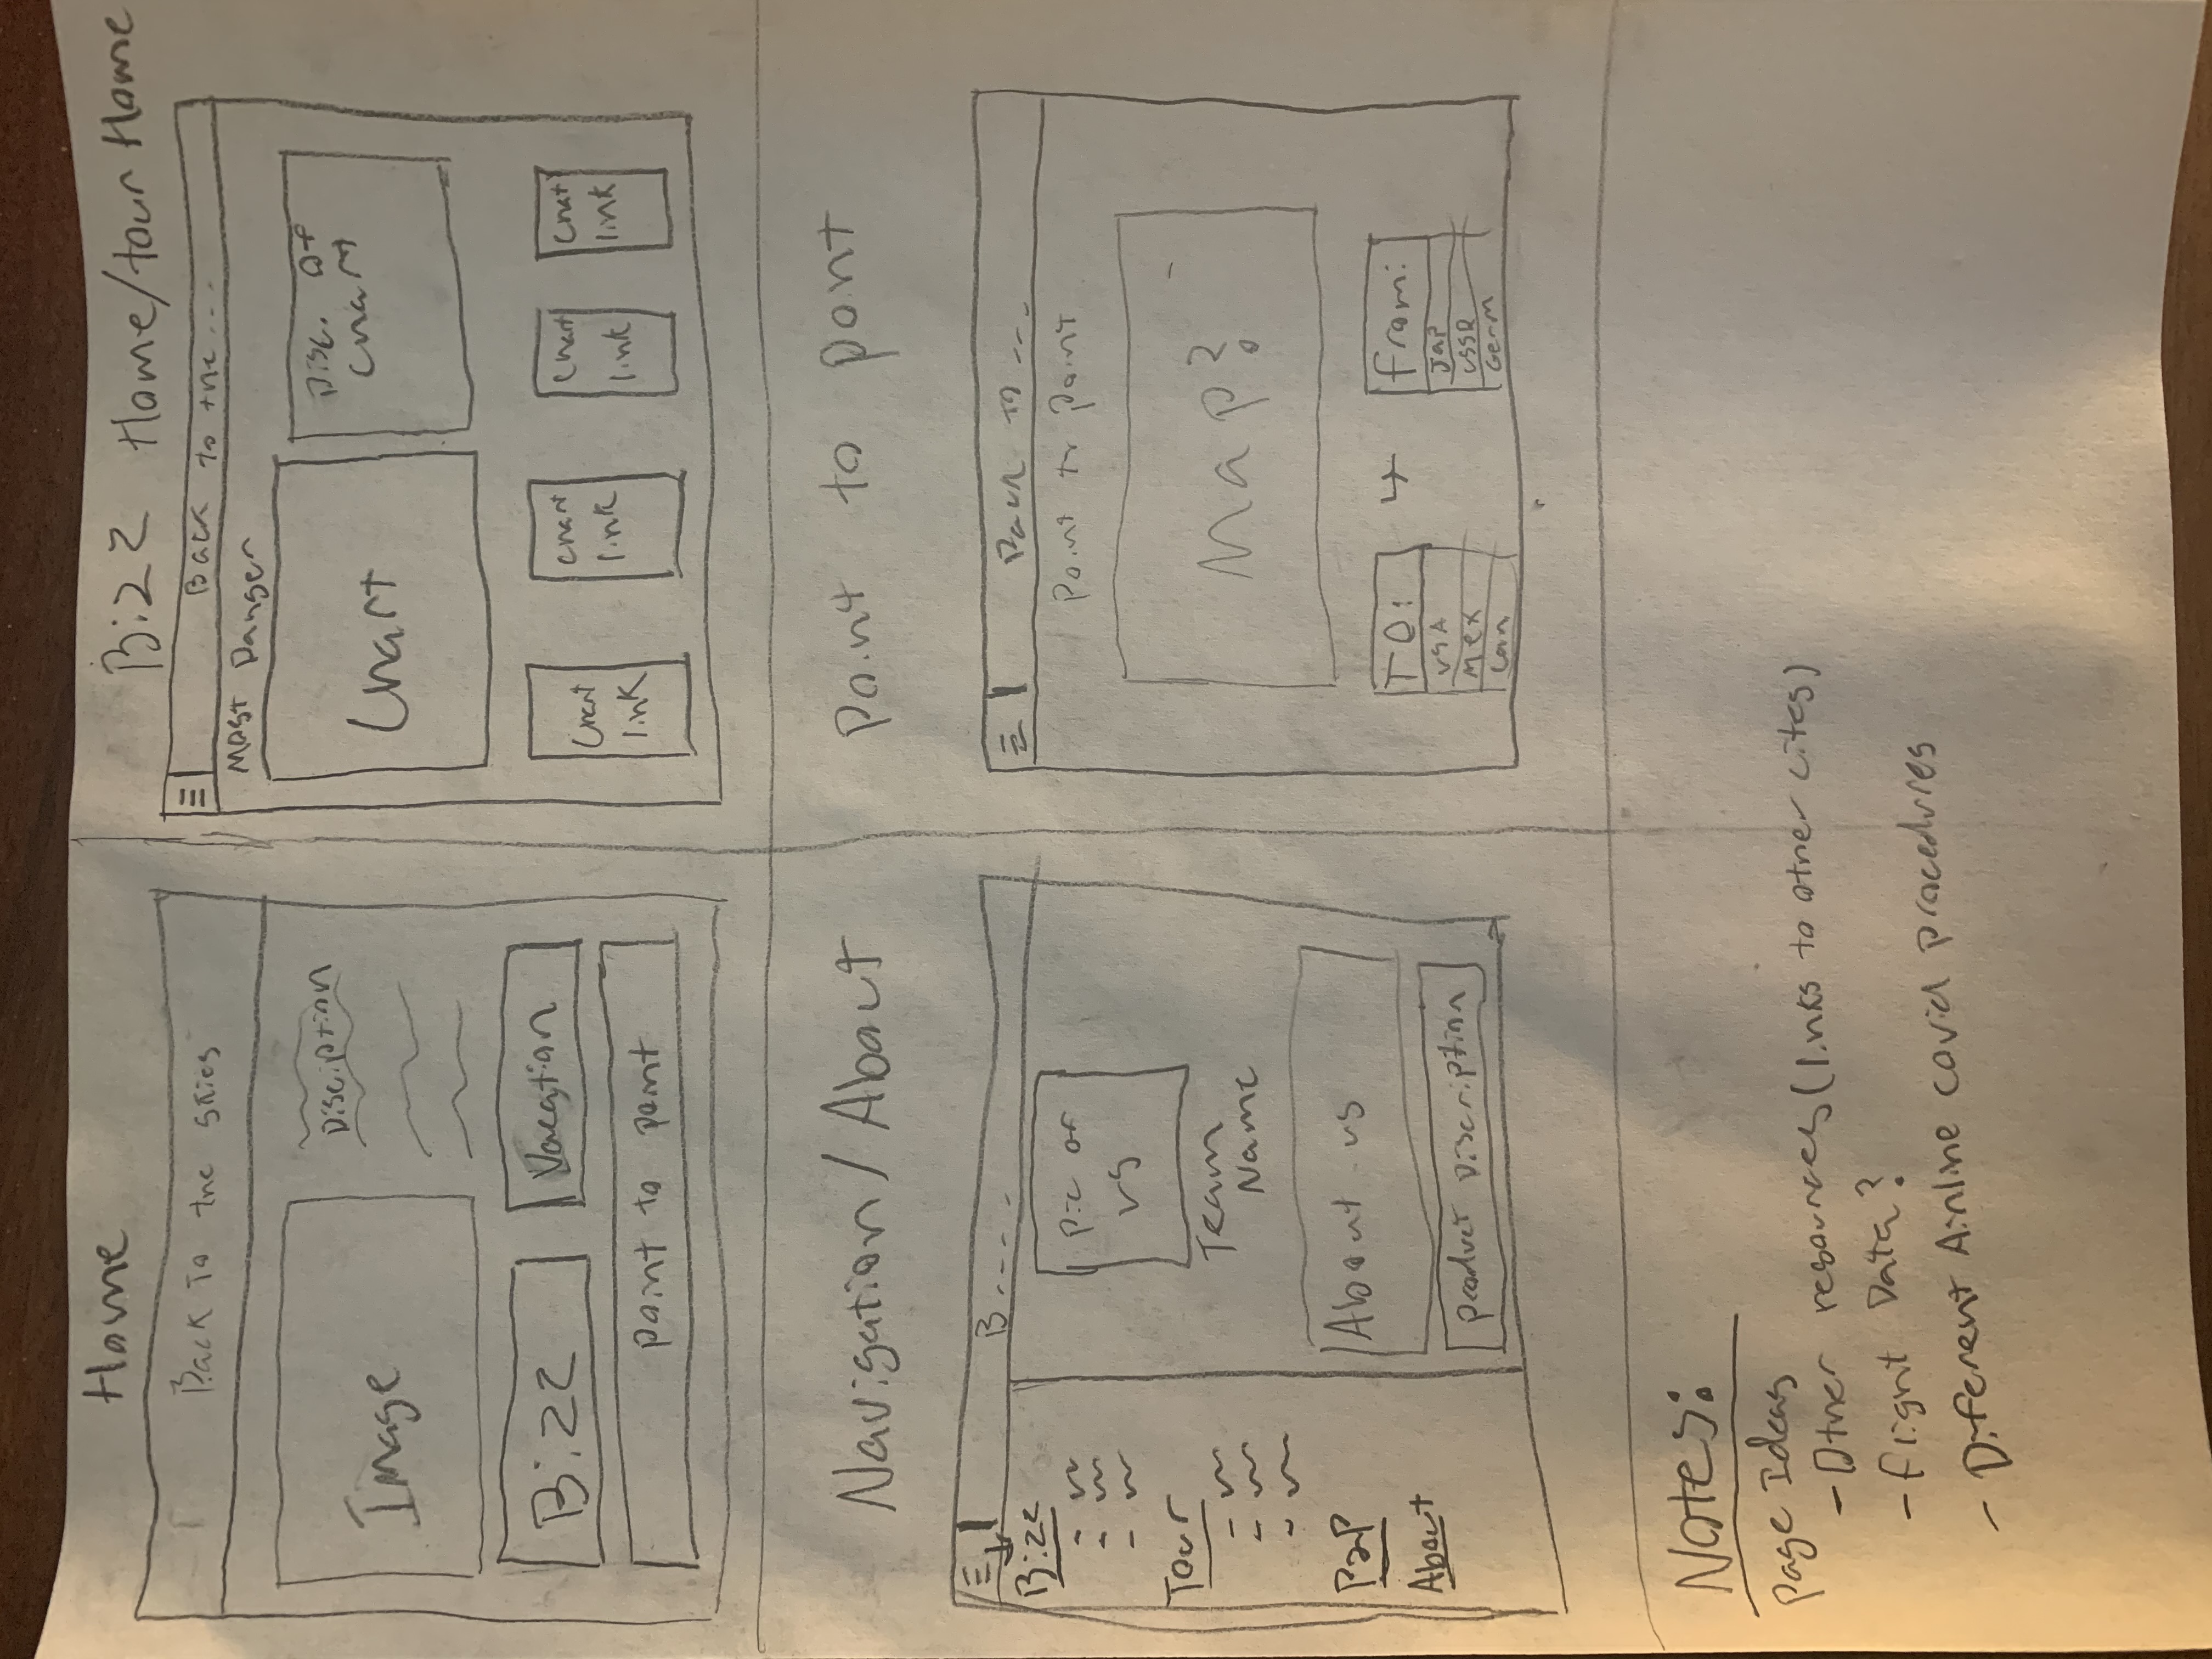 Home
Back To the skies
Image
Disciption
Bizz
Vacation
point to point
Bizz Home/tour Home
Back to the ...
Most Danger
Chart
Disc. Of
chart
Chart
link
chart
link
Chart
link
Chat
link
Navigation / About
B . . . .
Bizz
Tour
P2P
About
Pic of
us
Team
Name
About us
Product Discription
Point to pont
Back to ...
Point to point
Map?
TO:
USA
Mex
Can
From:
Jap
USSR
Germ
Notes:
Page Ideas
- Other resources (links to other cites)
- flight Data?
- Diferent Airline covid procedures